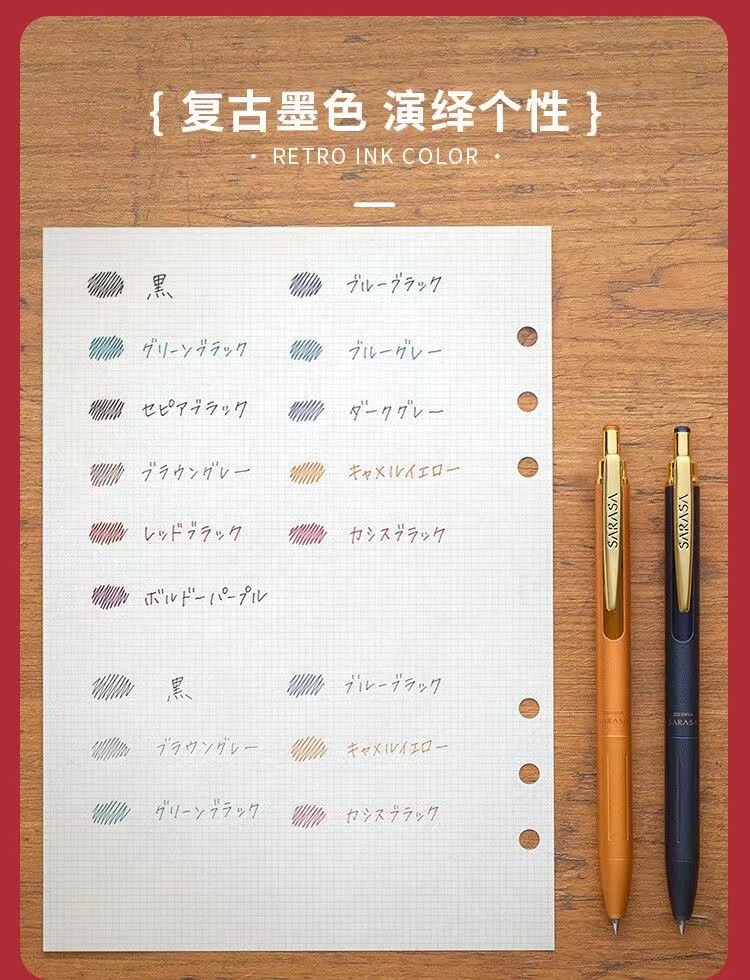 { 复古墨色 演绎个性 }
· RETRO INK COLOR ·
黒 ブルーブラック
グリーンブラック ブルーグレー
セピアブラック ダークグレー
ブラウングレー キャメルイエロー
レッドブラック カシスブラック
ボルドーパープル
黒 ブルーブラック
ブラウングレー キャメルイエロー
グリーンブラック カシスブラック
SARASA
SARASA
ZEBRA
SARASA
ZEBRA
SARASA